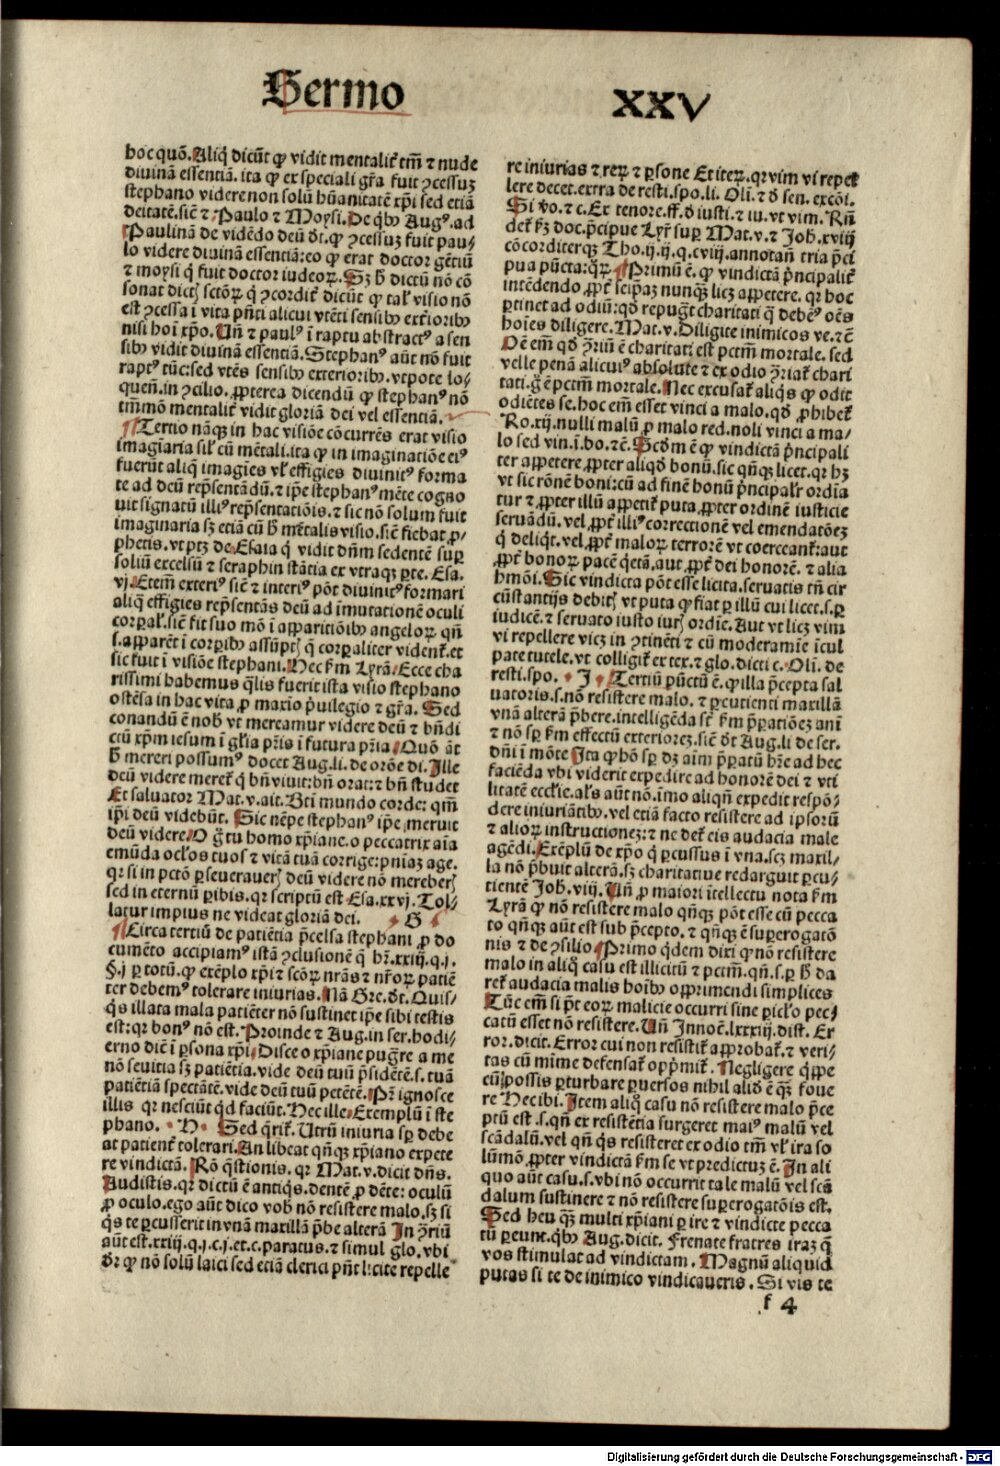 Sermo XXV
hoc quō. Aliq̄ dicūt ꝙ vidit mentalit̄ tm̄ ⁊ nude
diuinā essentiā. ita ꝙ ex speciali gr̄a fuit ꝯcessuꝫ
stephano videre non solū hūanitatē xp̄i sed etiā
deitatē. sic̄ ⁊ Paulo ⁊ Moysi. De qbꝰ Augꝰ. ad
Paulinā de vidēdo deū dt̄. ꝙ ꝯcessuꝫ fuit pau/
lo videre diuinā essentiā: eo ꝙ erat doctor gētiū
⁊ moysi q̄ fuit doctor iudeoꝝ. Sꝫ h̄ dictū nō cō
sonat dictꝭ sctōꝝ q̄ ꝯcordit̄ dicūt ꝙ tal̄ visio nō
est ꝯcessa ī vita pn̄ti alicui vtēti sensibꝰ exterioribꝰ
nisi hoī xp̄o. Un̄ ⁊ paulꝰ ī raptu abstractꝰ a sen
sibꝰ vidit diuinā essentiā. Stephanꝰ aūt nō fuit
raptꝰ tūc: sed vtēs sensibꝰ exterioribꝰ. vtpote lo-
quen̄. in ꝯcilio. ꝓpterea dicendū ꝙ stephanꝰ nō
tm̄mō mentalit̄ vidit gloriā dei vel essentiā.
¶Tertio nāꝗ in hac visiōe cōcurrēs erat visio
imagiaria sil̄ cū mētali. ita ꝙ in imaginatiōe eiꝰ
fuerūt aliq̄ imagīes vl̄ effigies diuinitꝰ forma
te ad deū rep̄sentādū. ⁊ ip̄e stephanꝰ mēte cogno
uit signatū illiꝰ rep̄sentatiōis. ⁊ sic nō solum fuit
imaginaria sꝫ etiā cū h̄ mētalis visio. sic̄ fiebat ꝓ/
phetis. vt ptꝫ de Esaia q̄ vidit dn̄m sedentē suꝑ
soliū excelsū ⁊ seraphin stātia ex vtraꝗ ꝑte. Esa.
vj. Etem̄ exteriꝰ sic̄ ⁊ interiꝰ pōt diuinitꝰ formari
aliq̄ effigies rep̄sentās deū ad īmutationē oculi
corꝑal̄. sic̄ fit suo mō ī apparitiōibꝰ angeloꝝ qn̄
s. apparēt ī corꝑibꝰ assūptꝭ q̄ corꝑaliter vident̄. et
sic fuit ī visiōe stephani. Hec ẜm Lyrā. Ecce cha
rissimi habemus q̄lis fuerit ista visio stephano
ostēsa in hac vita ꝓ maxīo p̄uilegio ⁊ gr̄a. Sed
conandū ē nob̄ vt mereamur videre deū ⁊ bn̄di
ctū xp̄m iesum ī gl̄ia pr̄is ī futura pr̄ia. Quō āt
h̄ mereri possumꝰ docet Aug. li. de orōe dī. Ille
deū videre meret̄ q̄ bn̄ viuit: bn̄ orat: ⁊ bn̄ studet
Et saluator Mat. v. ait. Bt̄i mundo corde: qm̄
ip̄i deū videbūt. Sic nēpe stephanꝰ ip̄e meruit
deū videre. O g̊ tu homo xp̄iane. o peccatrix aīa
emūda oc̄los tuos ⁊ vitā tuā corrige: pn̄iaꝫ age.
qꝛ si in pctō ꝑseuerauerꝭ deū videre nō mereberꝭ
sed in eternū ꝑibis. qꝛ scriptū est Esa. xxvj. Tol-
latur impius ne videat gloriā dei. G
¶Circa tertiū de patiētia p̄celsa stephani ꝓ do
cumēto accipiamꝰ istā ꝯclusionē q̄ hr̄. xxiij. q. j.
§. j ꝑ totū. ꝙ exēplo xp̄i ⁊ scōꝝ nr̄as ⁊ nr̄oꝝ patiē
ter debemꝰ tolerare iniurias. Nā Gre. dt̄. Quis-
q̄s illata mala patiēter nō sustinet ip̄e sibi testis
est: qꝛ bonꝰ nō est. Proinde ⁊ Aug. in ser. hodi-
erno diē ī ꝑsona xp̄i. Disce o xp̄iane pug̊re a me
nō seuitia sꝫ patiētia. vide deū tuū p̄sidētē. s. tuā
patiētiā spectātē. vide deū tuū petētē. Pr̄ ignosce
illis qꝛ nesciūt qd̄ faciūt. Hec ille. Exemplū ī ste
phano. H Sed q̄rit̄. Utrū iniuria sꝑ debe
at patient̄ tolerari. An libeat qn̄ꝗ xp̄iano expete
re vindictā. Rō q̄stionis. qꝛ Mat. v. dicit dn̄s.
Audistis. qꝛ dictū ē antiq̄s. dentē ꝓ dēte: oculū
ꝓ oculo. ego aūt dico vob̄ nō resistere malo. sꝫ si
q̄s te ꝑcusserit in vnā maxillā p̄be alterā In ꝯr̄iū
aūt est. xxiij. q. j. c. j. et. c. paratus. ⁊ simul glo. vbi
dr̄ ꝙ nō solū laici sed etiā clerici pn̄t licite repelle
re iniurias ⁊ reꝝ ⁊ ꝑsone Et iteꝝ. qꝛ vim vi repel
lere decet. extra de resti. spo. li. Oli. ⁊ d̄ sen. excōi.
Si v̄o. ⁊ c. Ex tenore. ff. d̄ iusti. ⁊ iu. vt vim. Rn̄
det̄ ẜꝫ doc. p̄cipue Lyr̄ suꝑ Mat. v. ⁊ Joh. xviij
cōcorditerꝗ Tho. ij. ij. q. cviij. annotan̄ tria p̄ci
pua pūcta: q̄ꝝ. ¶Primū ē. ꝙ vindictā p̄ncipalit̄
intēdendo ꝓpt̄ seip̄aꝫ nunꝗꝫ licꝫ appetere. qꝛ hoc
ꝑtinet ad odiū: qd̄ repug̊t charitati q̄ debēꝰ oēs
hoīes diligere. Mat. v. Diligite inimicos ve. ⁊ c̄
Oē em̄ qd̄ ꝯr̄iū ē charitati est pctm̄ mortale. sed
velle penā alicuiꝰ absolute ⁊ ex odio ꝯ̄riat̄ chari
tati. g̊ ē pctm̄ mortale. Nec excusat̄ aliq̄s ꝙ odit
odiētes se. hoc em̄ esset vinci a malo. qd̄ ꝓhibet̄
Ro. xij. nulli malū ꝓ malo red. noli vinci a ma/
lo sed vin. ī. bo. ⁊c̄. Scd̄m ē ꝙ vindictā p̄ncipali
ter appetere. ꝓpter aliqd̄ bonū. sic qn̄ꝗ licet. qꝛ hꝫ
vt sic rōnē boni: cū ad finē bonū p̄ncipal̄r ordīa
tur ⁊ ꝓpter illū appetit̄ puta. ꝓpter ordinē iusticie
seruādū. vel ꝓpt̄ illiꝰ correctionē vel emendatōeꝫ
q̄ deliq̄t. vel ꝓpt̄ maloꝝ terrorē vt coerceant̄: aut
ꝓpt̄ bonoꝝ pacē q̄etā. aut ꝓpt̄ dei honorē. ⁊ alia
hmōi. Sic vindicta pōt esse licita. seruatis tn̄ cir
cūstantijs debitꝭ vt puta ꝙ fiat ꝑ illū cui licet. s. ꝑ
iudicē. ⁊ seruato iusto iurꝭ ordīe. Aut vt licꝫ vim
vi repellere vicꝫ in ꝯtinēti ⁊ cū moderamīe īcul
pate tutele. vt colligit̄ ex tex. ⁊ glo. dicti c. Oli. de
resti. spo. J Tertiū pūctū ē. ꝙ illa p̄cepta sal
uatoris. s. nō resistere malo. ⁊ ꝑcutienti maxillā
vnā alterā p̄bere. intelligēda st̄ ẜm p̄ꝑatiōeꝫ anī
⁊ nō sꝑ ẜm effectū exterioreꝫ. sic̄ dt̄ Aug. li. de ser.
dn̄i ī mōte Ita ꝙ hō sꝑ dꝫ aīm p̄ꝑatū hr̄e ad hec
faciēda vbi viderit expedire ad honorē dei ⁊ vti
litatē eccl̄ie. al̄s aūt nō. īmo aliqn̄ expedit respō-
dere iniuriātibꝰ. vel etiā facto resistere ad ip̄orū
⁊ alioꝝ instructioneꝫ: ⁊ ne det̄ eis audacia male
agēdi. Exēplū de xp̄o q̄ ꝑcussus ī vna. scꝫ maxil-
la nō p̄buit alterā. sꝫ charitatiue redarguit ꝑcu-
tientē Joh. viij. Un̄ ꝓ maiori ītellectu nota ẜm
Lyrā ꝙ nō resistere malo qn̄ꝗ pōt esse cū pecca
to qn̄ꝗ aūt est sub p̄cepto. ⁊ qn̄ꝗ ē suꝑerogatō
nis ⁊ de ꝯsilio. ¶Primo q̄dem dixi ꝙ nō resistere
malo in aliq̄ casu est illicitū ⁊ pctm̄. qn̄. s. ꝑ h̄ da
ret̄ audacia malis hoībꝰ opprimendi simplices
Tūc em̄ si pr̄t eoꝝ malicie occurri sine ꝑicl̄o pec-
catū esset nō resistere. Un̄ Innoc̄. lxxxiij. dist. Er
ror. dicit. Error cui non resistit̄ approbat̄. ⁊ veri-
tas cū mīme defensat̄ opp̄mit̄. Negligere q̄ppe
cū possis ꝑturbare ꝑuersos nihil aliō ē ꝗꝫ foue
re Hec ibi. Item aliq̄ casu nō resistere malo p̄ce
ptū est. s. qn̄ ex resistētia surgeret maiꝰ malū vel
scādalū. vel qn̄ q̄s resisteret ex odio tm̄ vl̄ ira so
lūmō ꝓpter vindictā ẜm se vt predictuꝫ ē. In ali
quo aūt casu. s. vbi nō occurrit tale malū vel scā
dalum sustinere ⁊ nō resistere suꝑerogatōis est.
Sed heu ꝗꝫ multi xp̄iani ꝑ ire ⁊ vindicte pecca
tū ꝑeunt. qbꝰ Aug. dicit. Frenate fratres iraꝫ q̄
vos stimulat ad vindictam. Magnū aliquid
putas si te de inimico vindicaueris. Si vis te
f 4
Digitalisierung gefördert durch die Deutsche Forschungsgemeinschaft - DFG